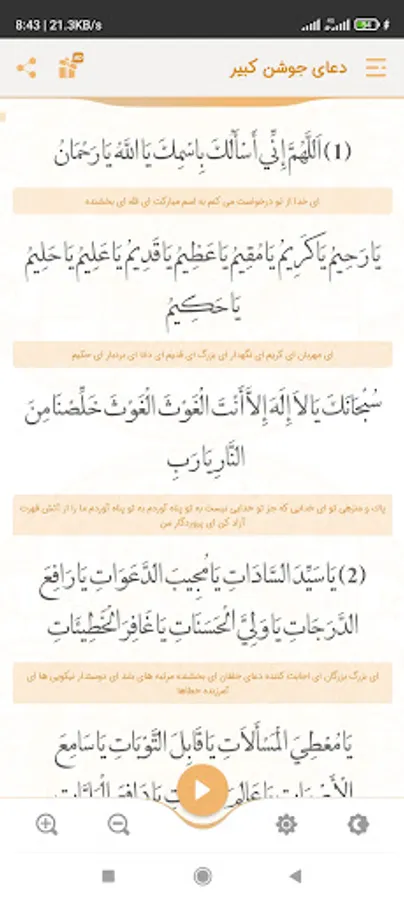 8:43 | 21.3KB/s
54
دعای جوشن کبیر
AD
(1) اَللَّهُمَّ إِنِّي أَسْأَلُكَ بِاسْمِكَ يَا اللَّهُ يَا رَحْمَانُ
ای خدا از تو درخواست می کنم به اسم مبارکت ای الله ای بخشنده
يَا رَحِيمُ يَا كَرِيمُ يَا مُقِيمُ يَا عَظِيمُ يَا قَدِيمُ يَا عَلِيمُ يَا حَلِيمُ
يَا حَكِيمُ
ای مهربان ای کریم ای نگهدار ای بزرگ ای قدیم ای دانا ای بردبار ای حکیم
سُبْحَانَكَ يَا لاَ إِلَهَ إِلاَّ أَنْتَ الْغَوْثَ الْغَوْثَ خَلِّصْنَا مِنَ
النَّارِ يَا رَبِ
پاک و منزهی تو ای خدایی که جز تو خدایی نیست به تو پناه آوردم به تو پناه آوردم ما را از آتش قهرت
آزاد کن ای پروردگار من
(2) يَا سَيِّدَ السَّادَاتِ يَا مُجِيبَ الدَّعَوَاتِ يَا رَافِعَ
الدَّرَجَاتِ يَا وَلِيَّ الْحَسَنَاتِ يَا غَافِرَ الْخَطِيئَاتِ
ای بزرگ بزرگان ای اجابت کننده دعای خلقان ای بخشنده مرتبه های بلند ای دوستدار نیکویی ها ای
آمرزنده خطاها
يَا مُعْطِيَ الْمَسْأَلاَتِ يَا قَابِلَ التَّوْبَاتِ يَا سَامِعَ